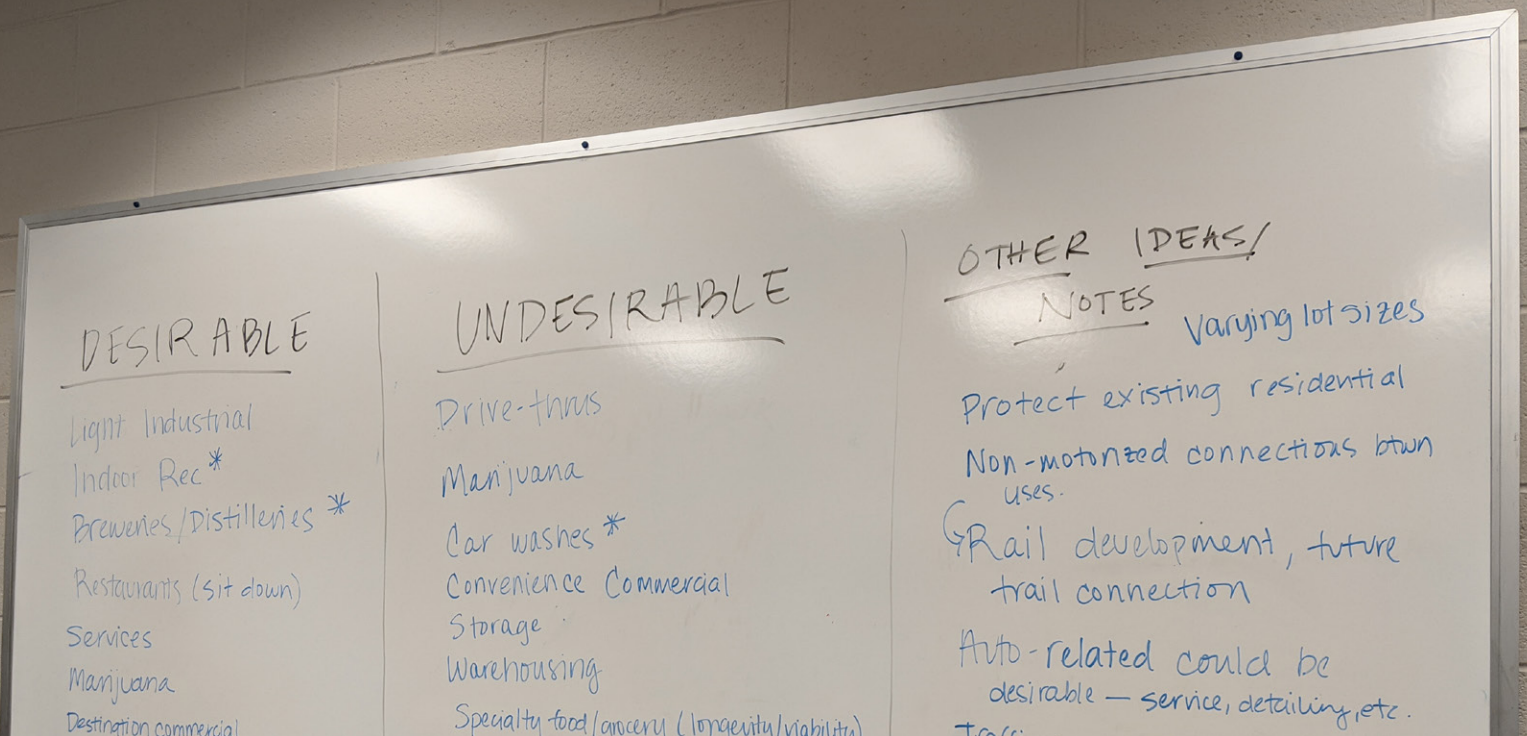 DESIRABLE
Light Industrial
Indoor Rec*
Breweries/Distilleries *
Restaurants (sit down)
Services
Marijuana
Destination commercial
UNDESIRABLE
Drive-thrus
Marijuana
Car washes*
Convenience Commercial
Storage
Warehousing
Specialty food/grocery (longevity/viability)
OTHER IDEAS/
NOTES
Varying lot sizes
Protect existing residential
Non-motorized connections btwn
uses.
Rail development, future
trail connection
Auto-related could be
desirable — service, detailing, etc.